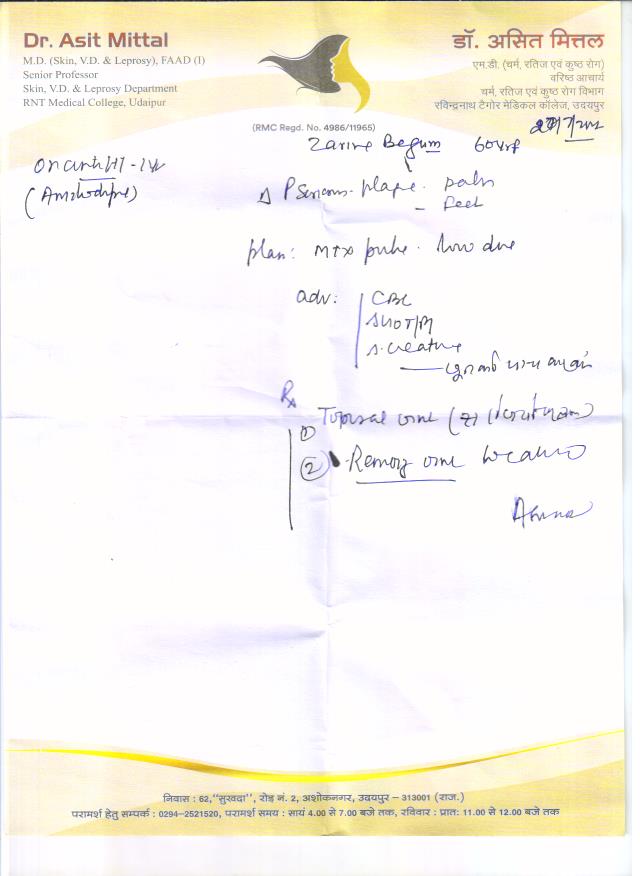 Dr. Asit Mittal
M.D. (Skin, V.D. & Leprosy), FAAD (I)
Senior Professor
Skin, V.D. & Leprosy Department
RNT Medical College, Udaipur
डॉ. असित मित्तल
एम.डी. (चर्म, रतिज एवं कुष्ठ रोग)
वरिष्ठ आचार्य
चर्म, रतिज एवं कुष्ठ रोग विभाग
रविन्द्रनाथ टैगोर मेडिकल कॉलेज, उदयपुर
(RMC Regd. No. 4986/11965)
Zarine Begum 60yrf
On anti HT
(Amlodipine)
Δ Psoriasis - plaque - palm
- feet
plan: MTX pulse - low dose
adv: CBC
SGOT/PT
s. creatine
Rx
① Topisal oint
②
निवास : 62,"सुखदा", रोड़ नं. 2, अशोकनगर, उदयपुर – 313001 (राज.)
परामर्श हेतु सम्पर्क : 0294-2521520, परामर्श समय : सायं 4.00 से 7.00 बजे तक, रविवार : प्रातः 11.00 से 12.00 बजे तक